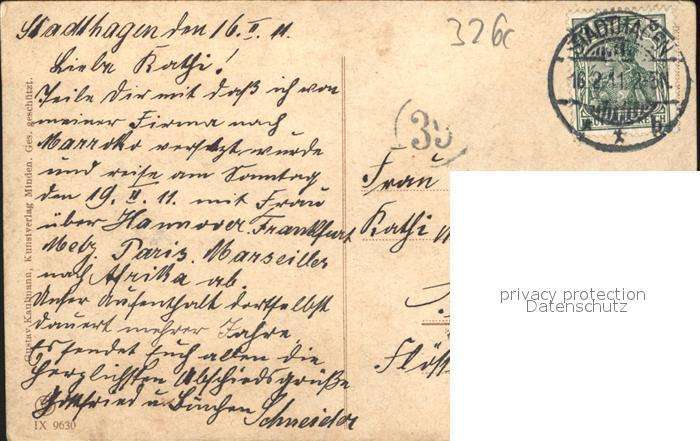 Stadthagen den 16. II. 11.
Liebe Kathi!
Teile Dir mit daß ich von
meiner Firma nach
Marroko versetzt wurde
und reise am Sonntag
den 19. II. 11. mit Frau
über Hannover. Frankfurt
Metz. Paris. Marseiller
nach Afrika ab.
Unser Aufenthalt dortselbst
dauert mehrer Jahre
Es sendet Euch allen die
herzlichsten Abschiedsgrüße
Gottfried u. Linchen
Schneider
326c
STADTHAGEN
16.2.11
35
Frau
Kathi
Flöss
privacy protection
Datenschutz
Gustav Kaufmann, Kunstverlag Minden. Ges. geschützt.
IX 9630